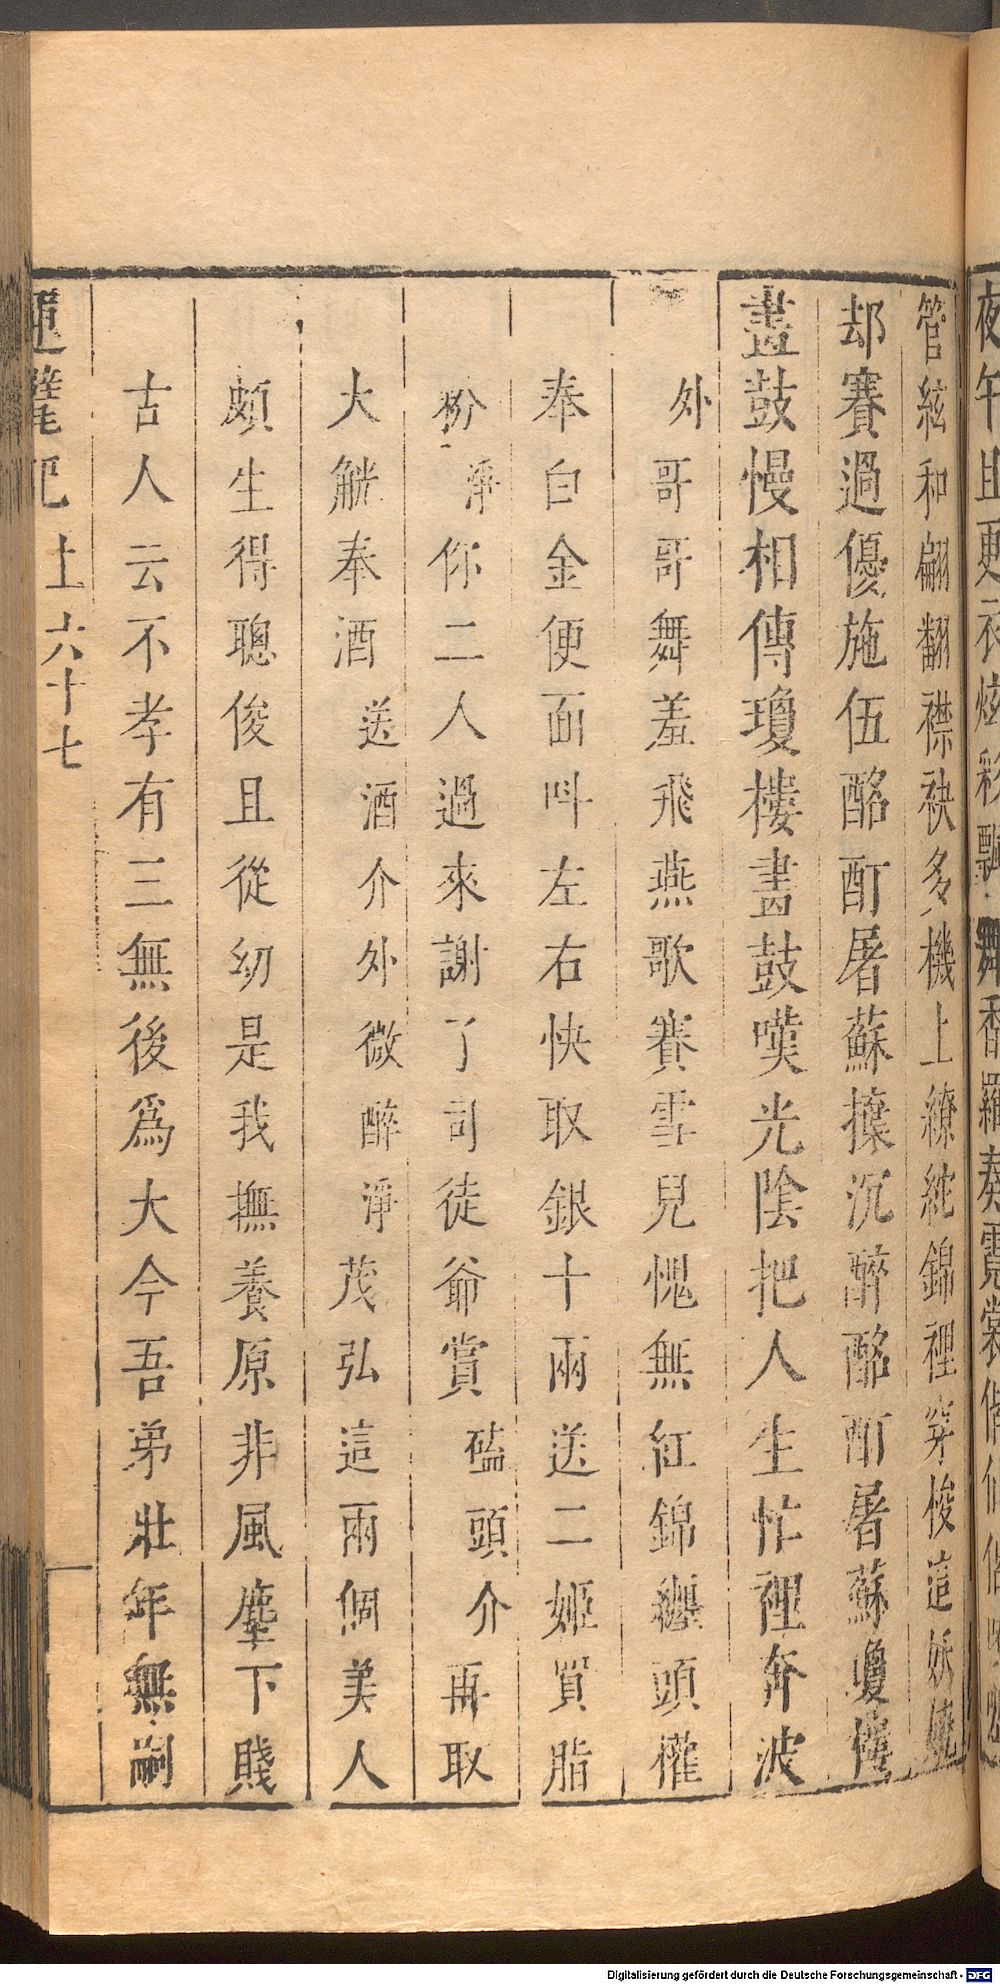 夜午且更衣炫彩飄舞香羅奏霓裳
管絃和翩翻襟袂多機上繚紽錦裡穿梭這妖嬈
却賽過優施伍酩酊屠蘇攥沉醉酩酊屠蘇瓊樓
畫鼓慢相傳瓊樓畫鼓嘆光陰把人生忙裡奔波
外
哥哥舞羞飛燕歌賽雪兒愧無紅錦纏頭權
奉白金便面叫左右快取銀十兩送二姬買脂
粉淨你二人過來謝了司徒爺賞磕頭介再取
大觥奉酒送酒介外微醉淨茂弘這兩個美人
頗生得聰俊且從幼是我撫養原非風塵下賤
古人云不孝有三無後爲大今吾弟壯年無嗣
運甓記 上 六十七
Digitalisierung gefördert durch die Deutsche Forschungsgemeinschaft - DFG